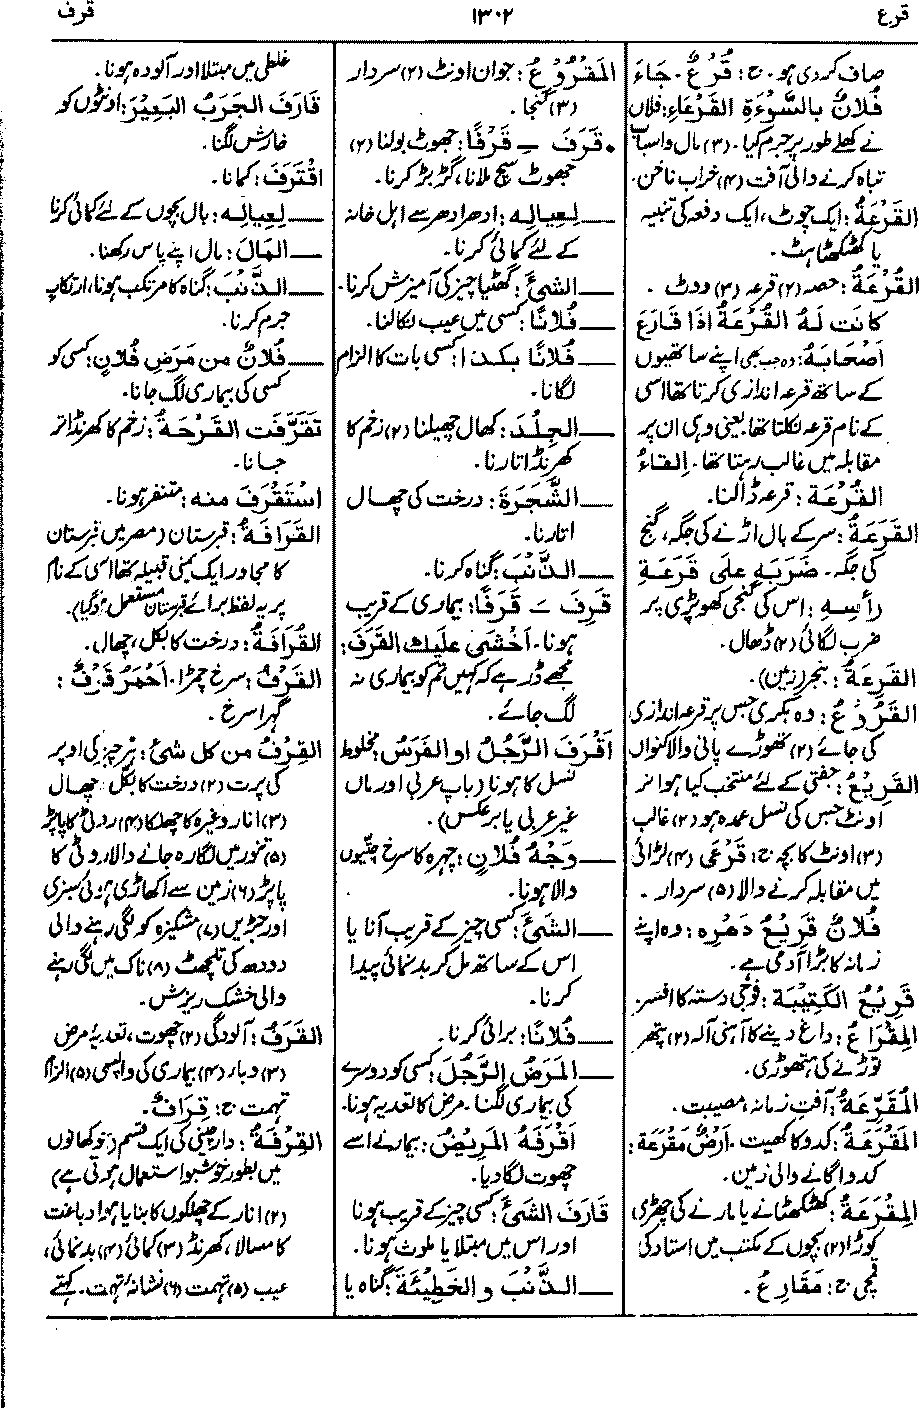 قرع
۱۳۰۲
قرف
صاف کردی ہو۔ ج: قُرْعٌ۔ جَاءَ
فُلَانٌ بِالسَّوْءَةِ القَرْعَاءِ: فلاں
نے کھلے طور پر جرم کیا۔ (۳) مال واسباب
تباہ کرنے والی آفت (۴) خراب ناخن۔
القَرْعَةُ: ایک چوٹ، ایک دفعہ کی تنبیہ
یا کھٹکھٹاہٹ۔
القُرْعَةُ: حصہ (۲) قرعہ (۳) ووٹ۔
کانَت لَهُ القُرْعَةُ اذَا قَارَعَ
اَصْحَابَهُ: وہ جب بھی اپنے ساتھیوں
کے ساتھ قرعہ اندازی کرتا تھا اسی
کے نام قرعہ نکلتا تھا یعنی وہی ان پر
مقابلہ میں غالب رہتا تھا۔ اِلقاءُ
القُرْعَة: قرعہ ڈالنا۔
القَرَعَةُ: سر کے بال اڑنے کی جگہ، گنج
کی جگہ۔ ضَرَبَهٖ عَلیٰ قَرَعَةِ
رَأسِهٖ: اس کی گنجی کھوپڑی پر
ضرب لگائی (۲) ڈھال۔
القَرِعَةُ: بنجر (زمین)۔
القَرُوْعُ: وہ بکری جس پر قرعہ اندازی
کی جائے (۲) تھوڑے پانی والا کنواں
القَرِيْعُ: جفتی کے لئے منتخب کیا ہوا نر
اونٹ جس کی نسل عمدہ ہو (۲) غالب
(۳) اونٹ کا بچہ ج: قَرْعَی (۴) لڑائی
میں مقابلہ کرنے والا (۵) سردار۔
فُلَانٌ قَرِيْعُ دَهْرِهٖ: وہ اپنے
زمانہ کا بڑا آدمی ہے۔
قَرِيْعُ الکَتِيْبَة: فوجی دستہ کا افسر۔
المِقْرَاعُ: داغ دینے کا آہنی آلہ (۲) پتھر
توڑنے کی ہتھوڑی۔
المُقَرِّعَةُ: آفتِ زمانہ، مصیبت۔
المَقْرَعَةُ: کدو کا کھیت۔ اَرْضٌ مَقْرَعَة:
کدو اگانے والی زمین۔
المِقْرَعَةُ: کھٹکھٹانے یا مارنے کی چھڑی
کوڑا (۲) بچوں کے مکتب میں استاد کی
قمچی ج: مَقَارِعُ۔
المَقْرُوْعُ: جوان اونٹ (۲) سردار
(۳) گنجا۔
• قَرَفَ ـِ قَرْفًا: جھوٹ بولنا (۲)
جھوٹ سچ ملانا، گڑبڑ کرنا۔
— لِعِيَالِهٖ: ادھر ادھر سے اہل خانہ
کے لئے کمائی کرنا۔
— الشئَ: گھٹیا چیز کی آمیزش کرنا۔
— فُلَانًا: کسی میں عیب نکالنا۔
— فُلَانًا بکذا: کسی بات کا الزام
لگانا۔
— الجِلْدَ: کھال چھیلنا (۲) زخم کا
کھرنڈ اتارنا۔
— الشَّجَرَةَ: درخت کی چھال
اتارنا۔
— الذَّنْبَ: گناہ کرنا۔
قَرِفَ ـَ قَرَفًا: بیماری کے قریب
ہونا۔ اَخْشٰی عَلَيْكَ القَرَفَ:
مجھے ڈر ہے کہ کہیں تم کو بیماری نہ
لگ جائے۔
اَقْرَفَ الرَّجُلُ او الفَرَسُ: مخلوط
نسل کا ہونا (باپ عربی اور ماں
غیر عربی یا برعکس)۔
— وَجْهُ فُلَانٍ: چہرہ کا سرخ چتّیوں
والا ہونا۔
— الشئَ: کسی چیز کے قریب آنا یا
اس کے ساتھ مل کر بدنمائی پیدا
کرنا۔
— فُلَانًا: برائی کرنا۔
— المَرَضُ الرَّجُلَ: کسی کو دوسرے
کی بیماری لگنا۔ مرض کا تعدیہ ہونا۔
اَقْرَفَهُ المَرِيْضُ: بیمار نے اسے
چھوت لگا دیا۔
قَارَفَ الشئَ: کسی چیز کے قریب ہونا
اور اس میں مبتلا یا ملوث ہونا۔
— الذَّنْبَ و الخَطِيْئَةَ: گناہ یا
غلطی میں مبتلا اور آلودہ ہونا۔
قَارَفَ الجَرَبُ البَعِيْرَ: اونٹوں کو
خارش لگنا۔
اقْتَرَفَ: کمانا۔
— لِعِيَالِهٖ: بال بچوں کے لئے کمائی کرنا
— المَالَ: مال اپنے پاس رکھنا۔
— الذَّنْبَ: گناہ کا مرتکب ہونا، ارتکاب
جرم کرنا۔
— فُلَانٌ من مَرَضِ فُلَانٍ: کسی کو
کسی کی بیماری لگ جانا۔
تَقَرَّفَت القَرْحَةُ: زخم کا کھرنڈ اتر
جانا۔
اسْتَقْرَفَ منه: متنفر ہونا۔
القَرَافَةُ: قبرستان (مصر میں قبرستان
کا مجاور ایک یمنی قبیلہ تھا اسی کے نام
پر یہ لفظ برائے قبرستان مستعمل ہوگیا)۔
القُرَافَةُ: درخت کا بکل، چھال)۔
القَرْفُ: سرخ چمڑا۔ اَحْمَرُ قَرْفٌ:
گہرا سرخ۔
القِرْفُ من کل شیءٍ: ہر چیز کی اوپر
کی پرت (۲) درخت کا بکل، چھال
(۳) انار وغیرہ کا چھلکا (۴) روٹی کا پاپڑ
(۵) تنور میں لگا رہ جانے والا روٹی کا
پاپڑ (۶) زمین سے اکھاڑی ہوئی سبزی
اور جڑیں (۷) مشکیزہ کو لگی رہنے والی
دودھ کی تلچھٹ (۸) ناک میں لگی رہنے
والی خشک ریزش۔
القَرَفُ: آلودگی (۲) چھوت، تعدیۂ مرض
(۳) وبا (۴) بیماری کی واپسی (۵) الزام
تہمت ج: قِرَافٌ۔
القِرْفَةُ: دارچینی کی ایک قسم (جو کھانوں
میں بطور خوشبو استعمال ہوتی ہے)
(۲) انار کے چھلکوں کا بنایا ہوا دباغت
کا مسالا، کھرنڈ (۳) کمائی (۴) بدنمائی،
عیب (۵) تہمت (۶) نشانۂ تہمت۔ کہتے